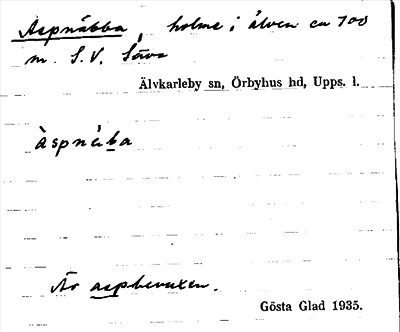 Aspnäbba, holme i älven ca 700
m. S.V. Säva
Älvkarleby sn, Örbyhus hd, Upps. l.
àspnäba
Är aspbevuxen.
Gösta Glad 1935.